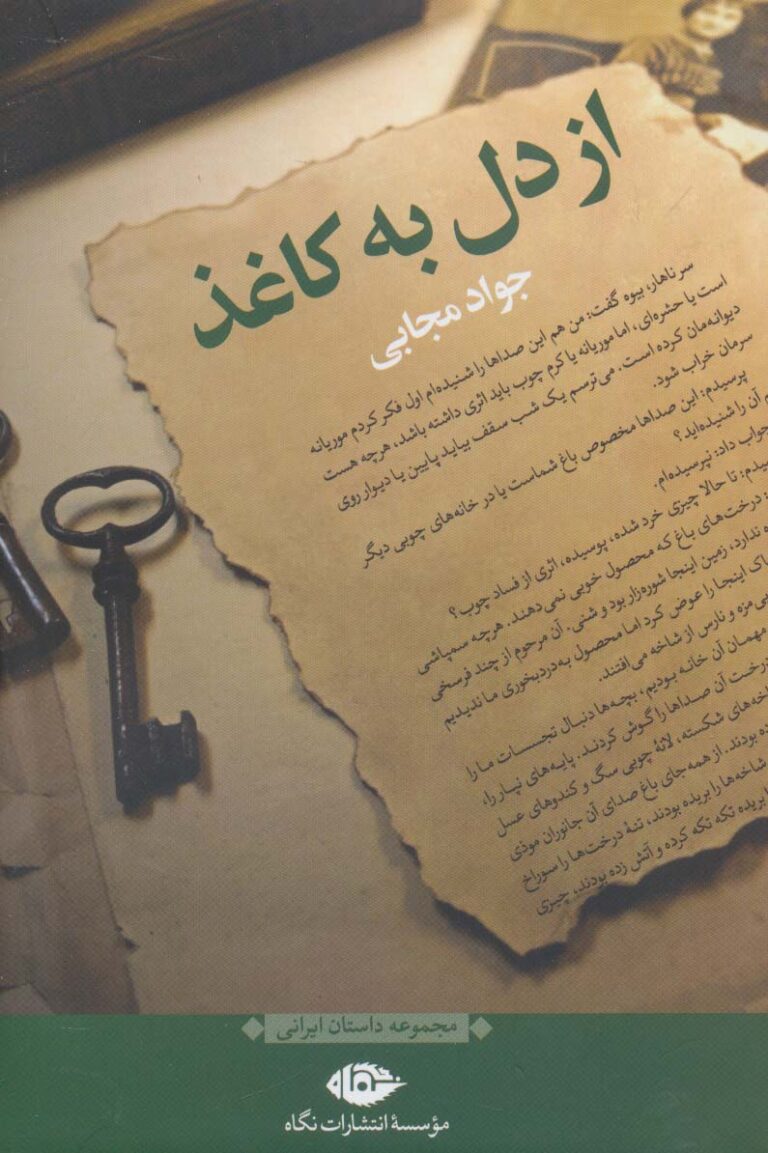 از دل به کاغذ
جواد مجابی
سر ناهار، بیوه گفت: من هم این صداها را شنیده‌ام اول فکر کردم موریانه
است یا حشره‌ای، اما موریانه یا کرم چوب باید اثری داشته باشد، هرچه هست
دیوانه‌مان کرده است. می‌ترسم یک شب سقف بیاید پایین یا دیوار روی
سرمان خراب شود.
پرسیدم: این صداها مخصوص باغ شماست یا در خانه‌های چوبی دیگر
آن را شنیده‌اید؟
جواب داد: نپرسیده‌ام.
تا حالا چیزی خرد شده، پوسیده، اثری از فساد چوب؟
درخت‌های باغ که محصول خوبی نمی‌دهند. هرچه سمپاشی
ندارد، زمین اینجا شوره‌زار بود و شنی. آن مرحوم از چند فرسخی
اینجا را عوض کرد اما محصول به‌دردبخوری ما ندیدیم
مزه و نارس از شاخه می‌افتند.
مهمان آن خانه بودیم، بچه‌ها دنبال تجسسات ما را
درخت آن صداها را گوش کردند. پایه‌های نپار را،
شکسته، لانهٔ چوبی سگ و کندوهای عسل
بودند. از همه جای باغ صدای آن جانوران موذی
شاخه‌ها را بریده بودند، تنهٔ درخت‌ها را سوراخ
بریده تکه تکه کرده و آتش زده بودند، چیزی
مجموعه داستان ایرانی
مؤسسهٔ انتشارات نگاه